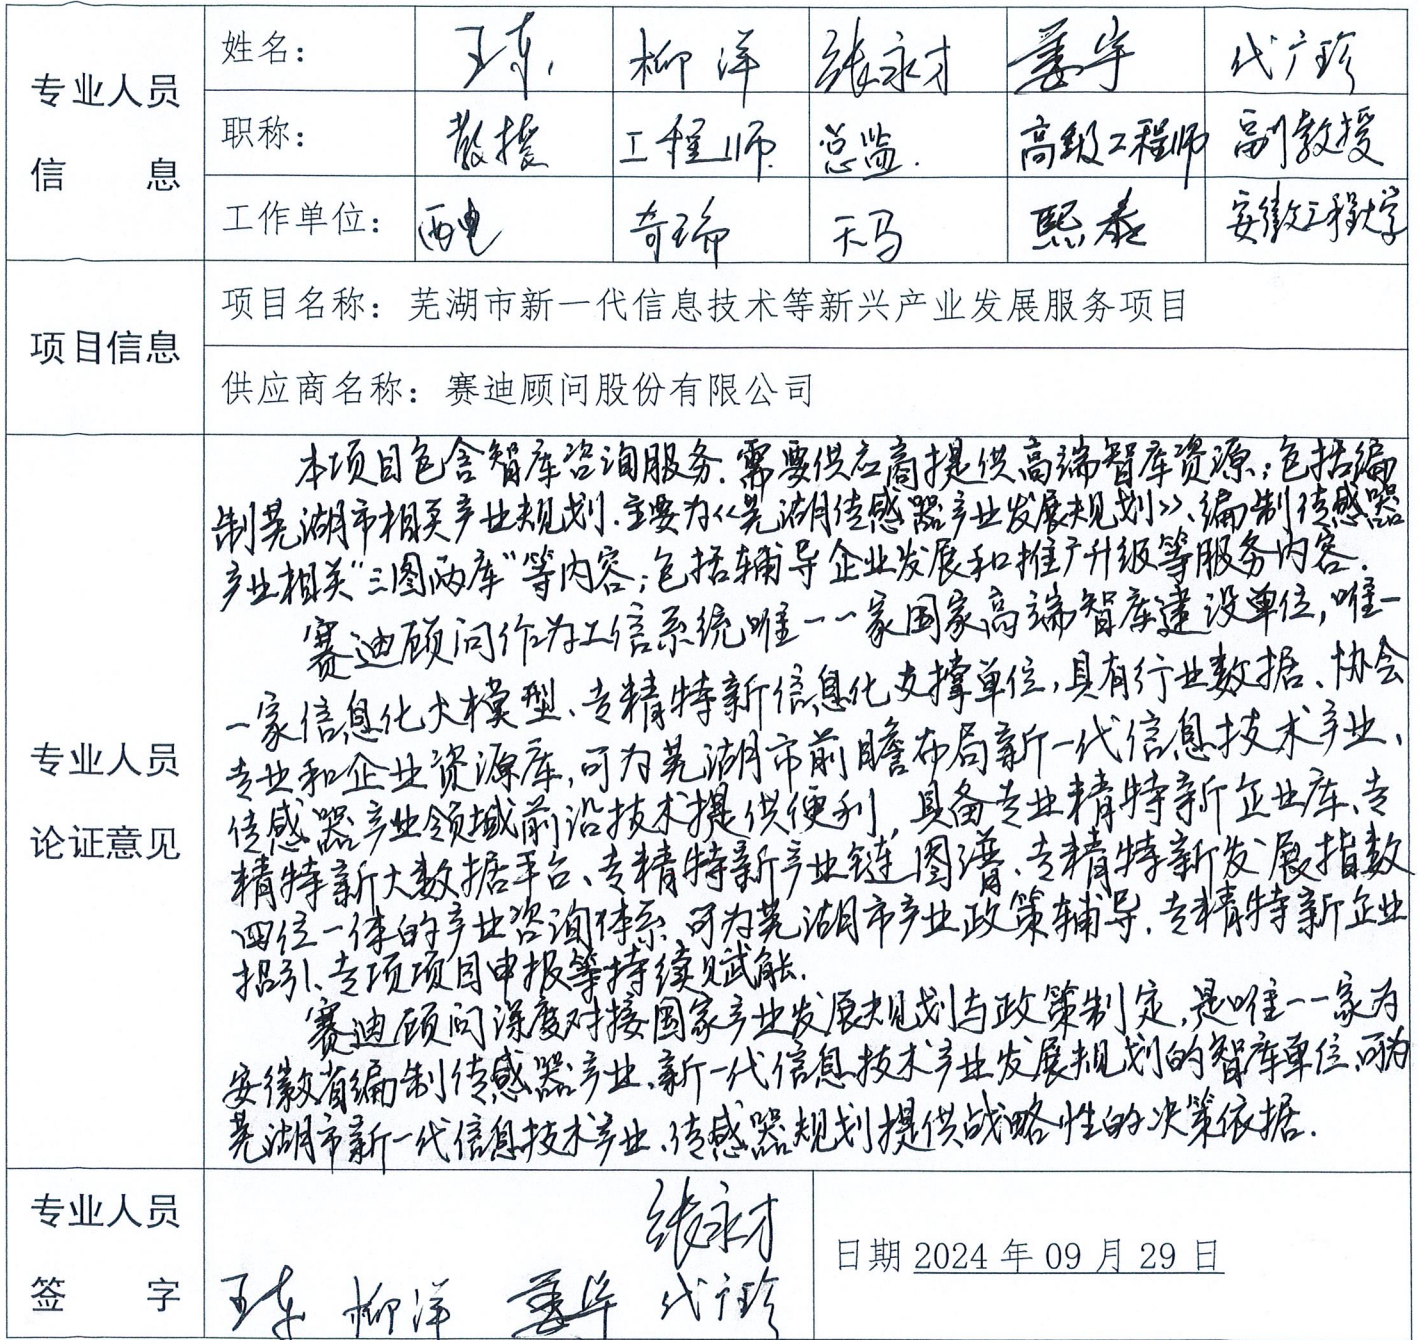 专业人员
信　　息
姓名： 王东 柳洋 张永才 姜宇 代广珍
职称： 教授 工程师 总监 高级工程师 副教授
工作单位： 西电 奇瑞 天马 熙泰 安徽工程大学
项目信息
项目名称：芜湖市新一代信息技术等新兴产业发展服务项目
供应商名称：赛迪顾问股份有限公司
专业人员
论证意见
本项目包含智库咨询服务.需要供应商提供高端智库资源；包括编
制芜湖市相关产业规划.主要为《芜湖传感器产业发展规划》、编制传感器
产业相关“三图两库”等内容；包括辅导企业发展和推产升级等服务内容.
赛迪顾问作为工信系统唯一一家国家高端智库建设单位，唯一
一家信息化大模型、专精特新信息化支撑单位，具有行业数据、协会
专业和企业资源库，可为芜湖市前瞻布局新一代信息技术产业、
传感器产业领域前沿技术提供便利，具备专业精特新企业库、专
精特新大数据平台、专精特新产业链图谱、专精特新发展指数
四位一体的产业咨询体系，可为芜湖市产业政策辅导、专精特新企业
招引、专项项目申报等持续赋能.
赛迪顾问深度对接国家产业发展规划与政策制定，是唯一一家为
安徽省编制传感器产业、新一代信息技术产业发展规划的智库单位，可为
芜湖市新一代信息技术产业、传感器规划提供战略性的决策依据.
专业人员
签　　字
张永才
王东 柳洋 姜宇 代广珍
日期 2024 年 09 月 29 日